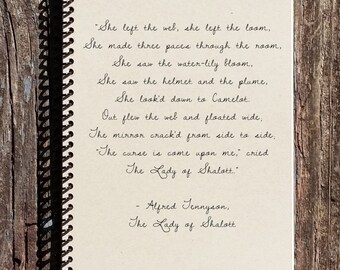 "She left the web, she left the loom,
She made three paces through the room,
She saw the water-lily bloom,
She saw the helmet and the plume,
She look'd down to Camelot.
Out flew the web and floated wide,
The mirror crack'd from side to side,
"The curse is come upon me," cried
The Lady of Shalott."
- Alfred Tennyson,
The Lady of Shalott